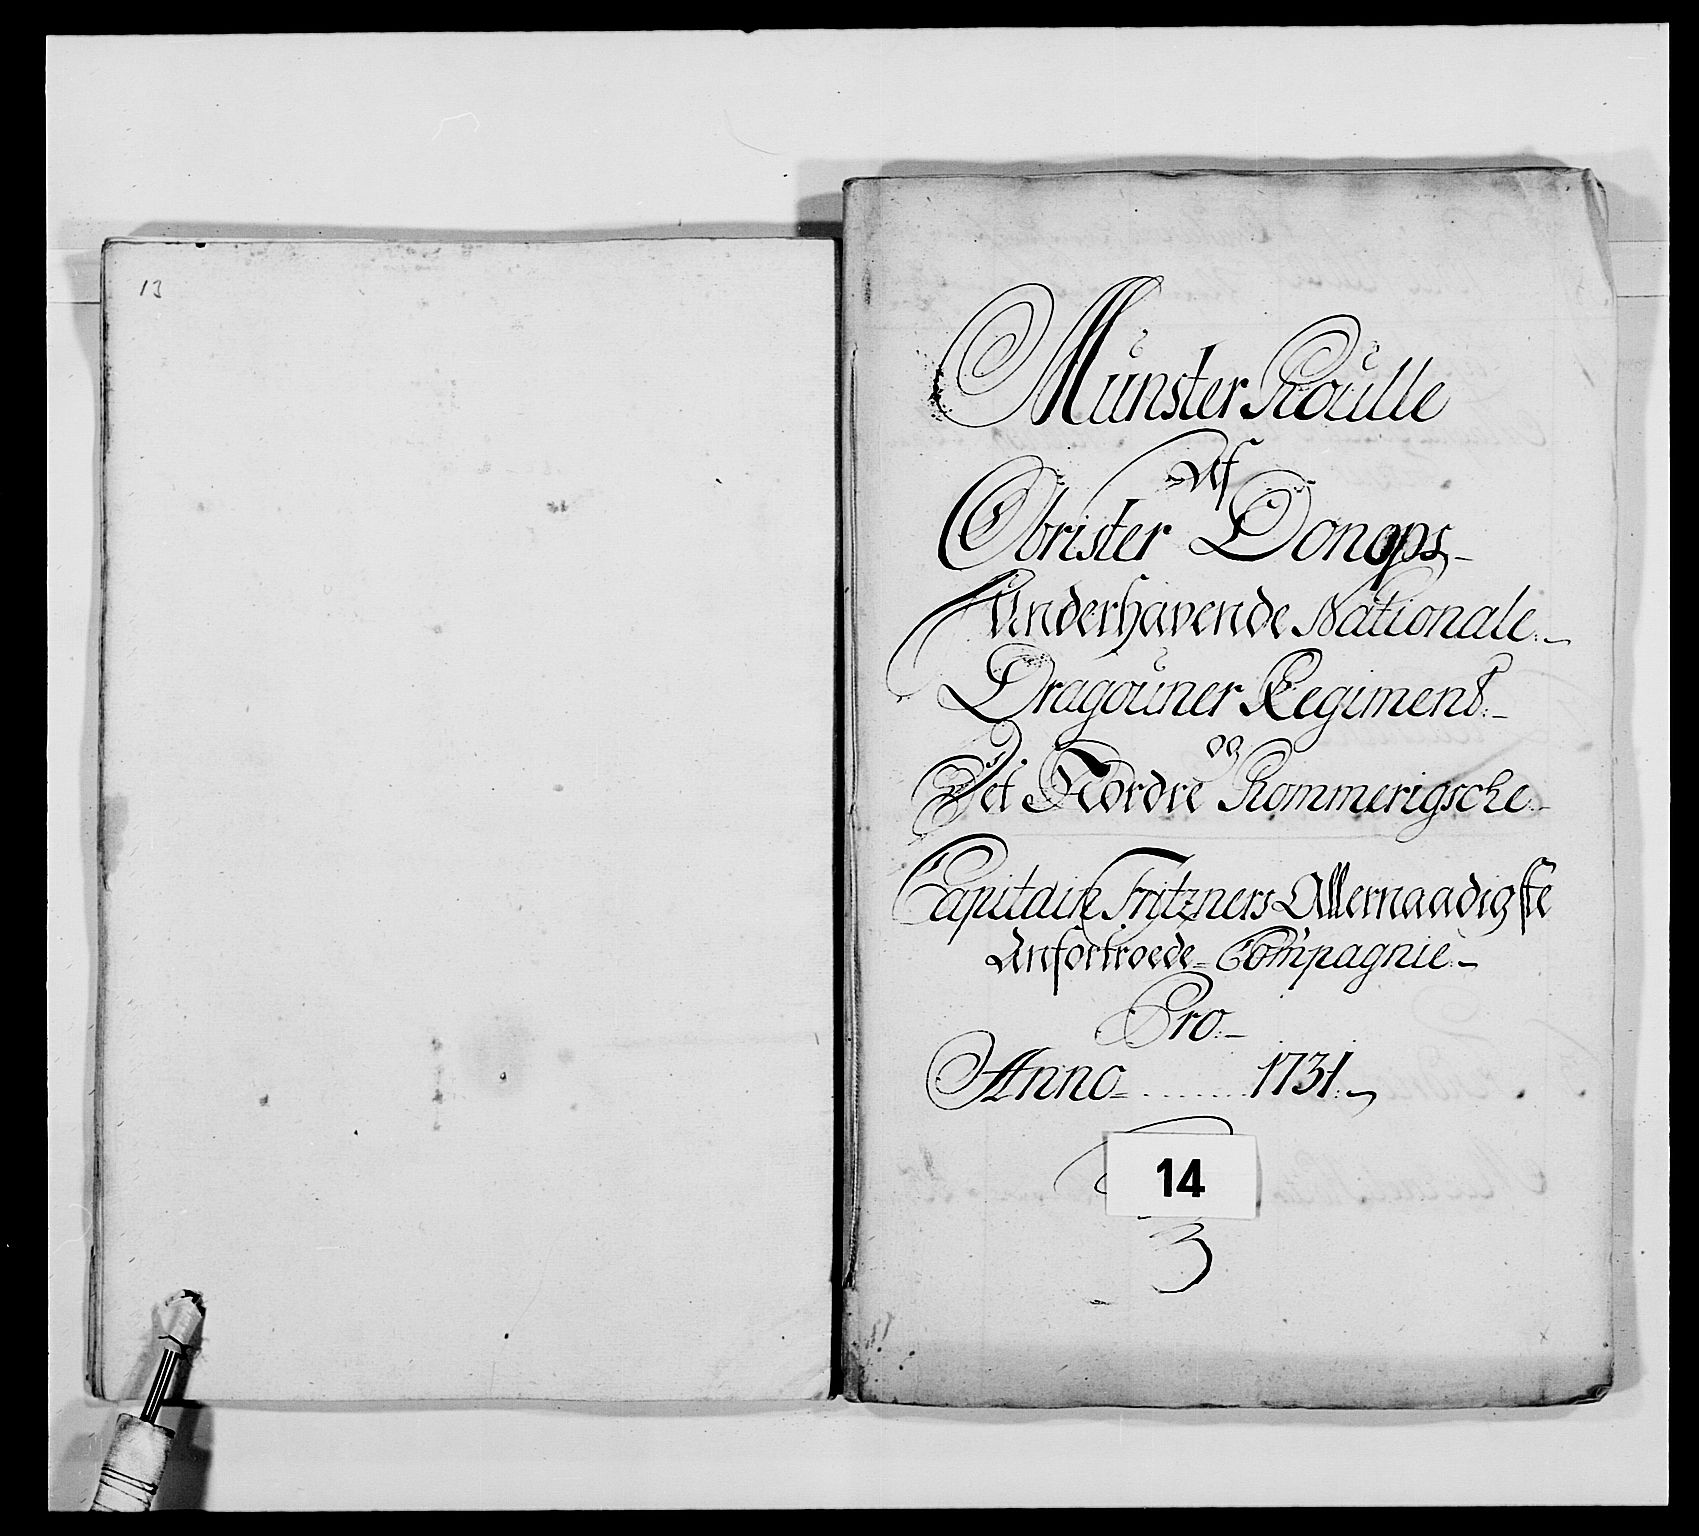 13
Münster Roülle
Af
Obrister Donops
Underhavende Nationale
Dragoüner Regiment
og
Det Nordre Rommerigsche
Capitain Fritzners Allernaadigste
Anfortroede Compagnie
Pro
Anno ........ 1731
14
3